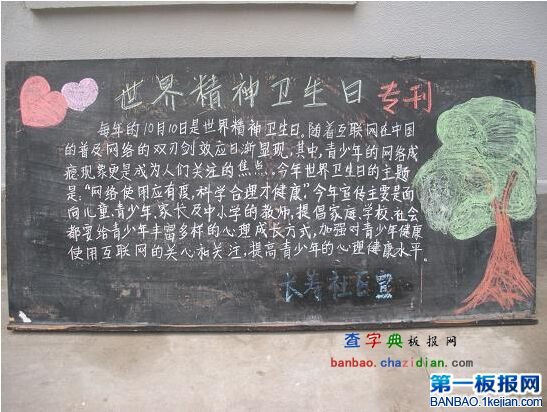 世界精神卫生日 专刊
每年的10月10日是世界精神卫生日。随着互联网在中国
的普及网络的双刃剑效应日渐显现,其中,青少年的网络成
瘾现象更是成为人们关注的焦点。今年世界卫生日的主题
是:“网络使用应有度,科学合理才健康”。今年宣传主要是面
向儿童、青少年、家长及中小学的教师,提倡家庭、学校、社会
都要给青少年丰富多样的心理成长方式,加强对青少年健康
使用互联网的关心和关注,提高青少年的心理健康水平。
长寿社区宣
查字典板报网
banbao.chazidian.com
第一板报网
BANBAO.1kejian.com